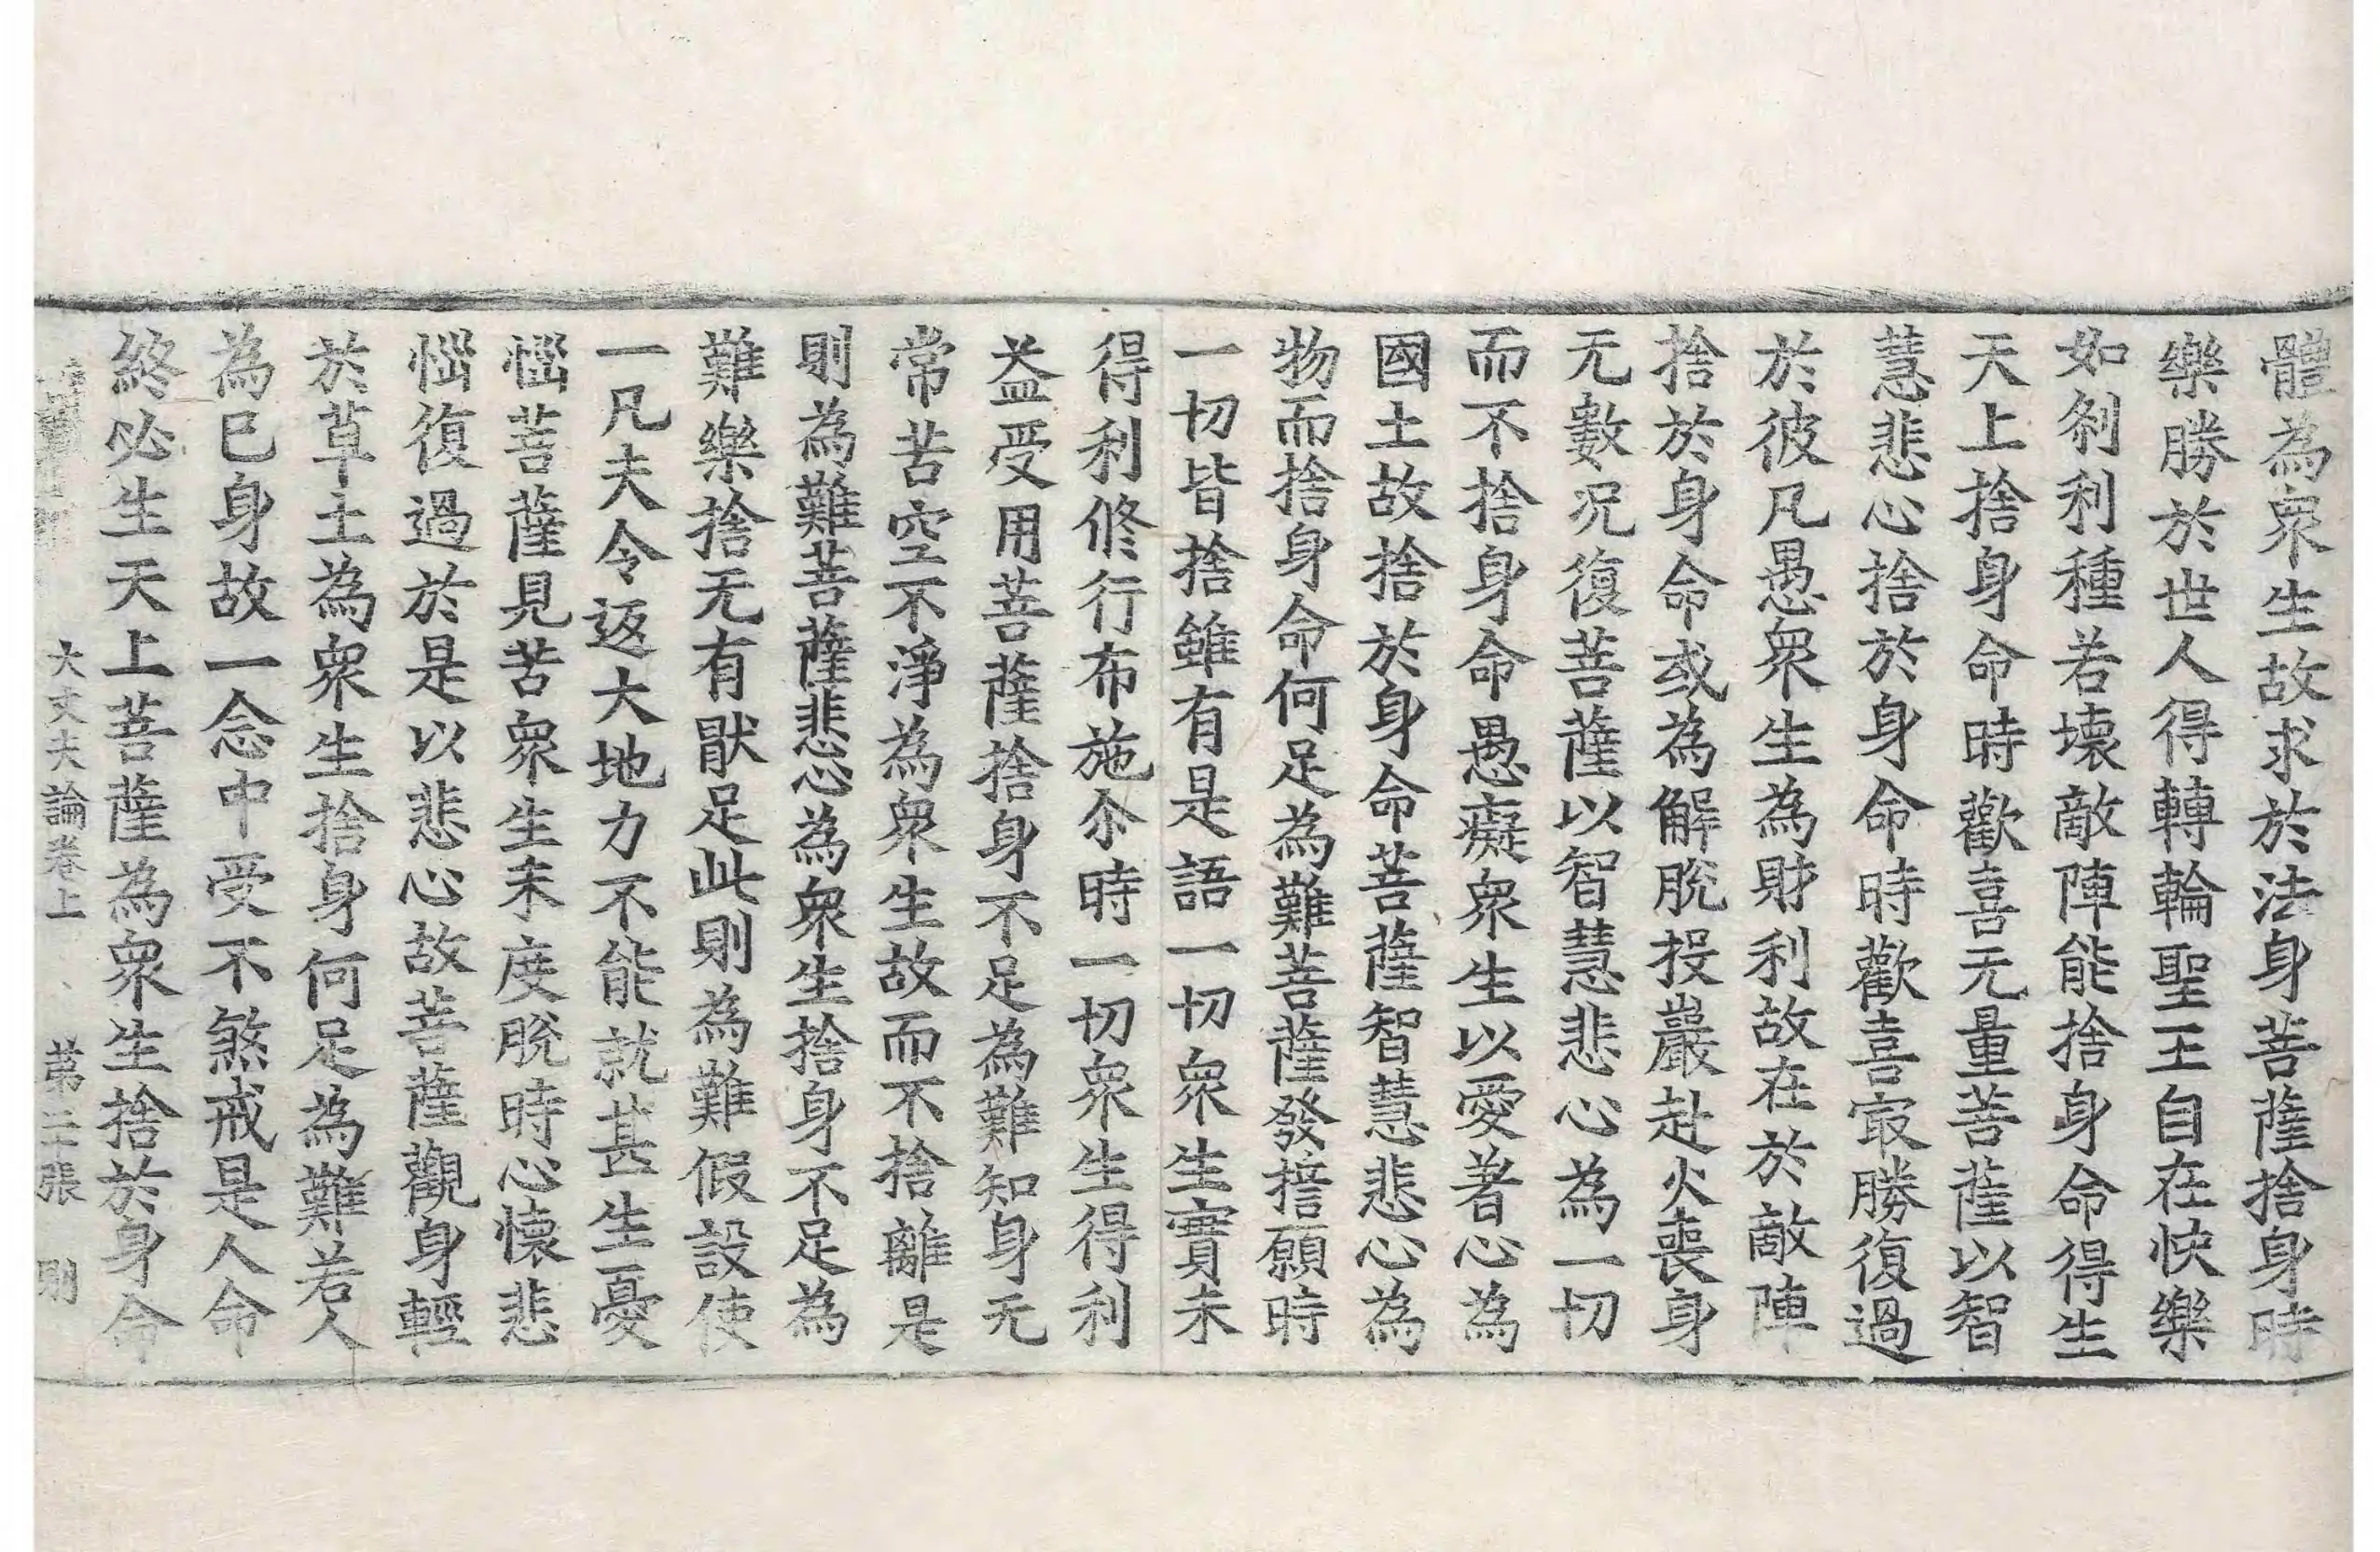 體為衆生故求於法身菩薩捨身時
樂勝於世人得轉輪聖王自在快樂
如剎利種若壞敵陣能捨身命得生
天上捨身命時歡喜无量菩薩以智
慧悲心捨於身命時歡喜㝡勝復過
於彼凡愚衆生為財利故在於敵陣
捨於身命或為解脫投巖赴火喪身
无數況復菩薩以智慧悲心為一切
而不捨身命愚癡衆生以愛著心為
國土故捨於身命菩薩智慧悲心為
物而捨身命何足為難菩薩發擔願時
一切皆捨雖有是語一切衆生實未
得利修行布施尒時一切衆生得利
益受用菩薩捨身不足為難知身无
常苦空不淨為衆生故而不捨離是
則為難菩薩悲心為衆生捨身不足為
難樂捨无有猒足此則為難假設使
一凡夫令返大地力不能就甚生憂
惱菩薩見苦衆生未度脫時心懷悲
惱復過於是以悲心故菩薩觀身輕
於草土為衆生捨身何足為難若人
為已身故一念中受不煞戒是人命
終必生天上菩薩為衆生捨於身命
大丈夫論卷上 第二十張 則